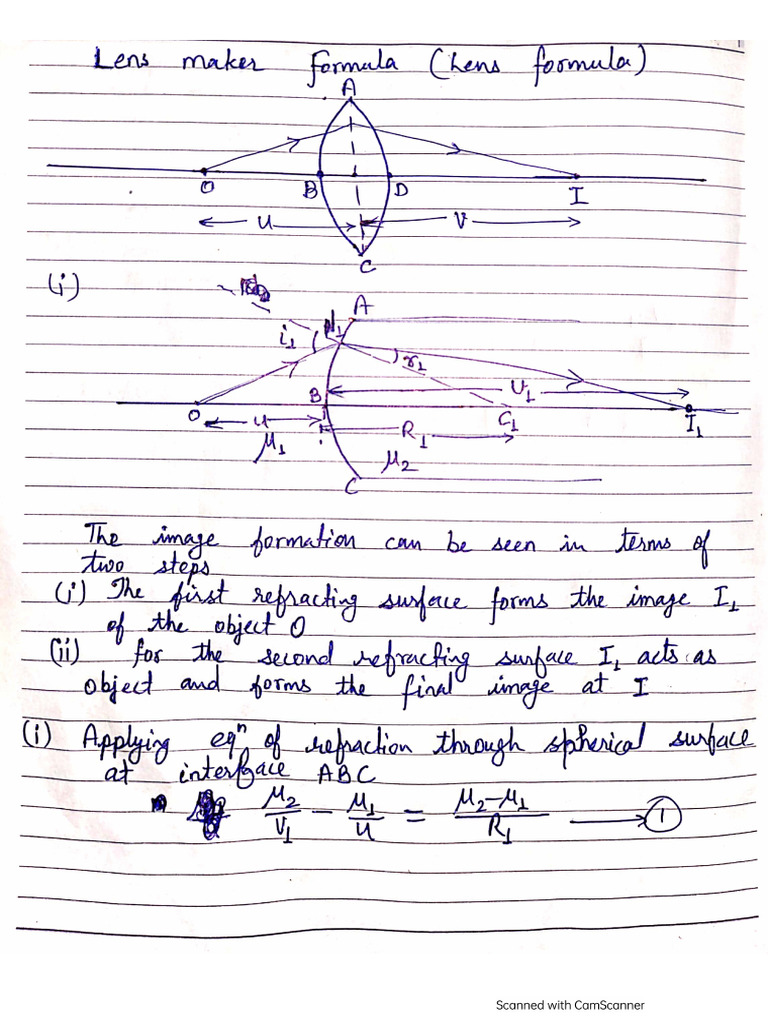 Lens maker formula (Lens formula)
A
O B D I
u v
C
(i)
A
i₁ N₁ r₁
B v₁
O u R₁ C₁ I₁
μ₁ μ₂
C
The image formation can be seen in terms of
two steps
(i) The first refracting surface forms the image I₁
of the object O
(ii) for the second refracting surface I₁ acts as
object and forms the final image at I
(i) Applying eqⁿ of refraction through spherical surface
at interface ABC
μ₂/V₁ − μ₁/u = μ₂−μ₁/R₁ → ①
Scanned with CamScanner